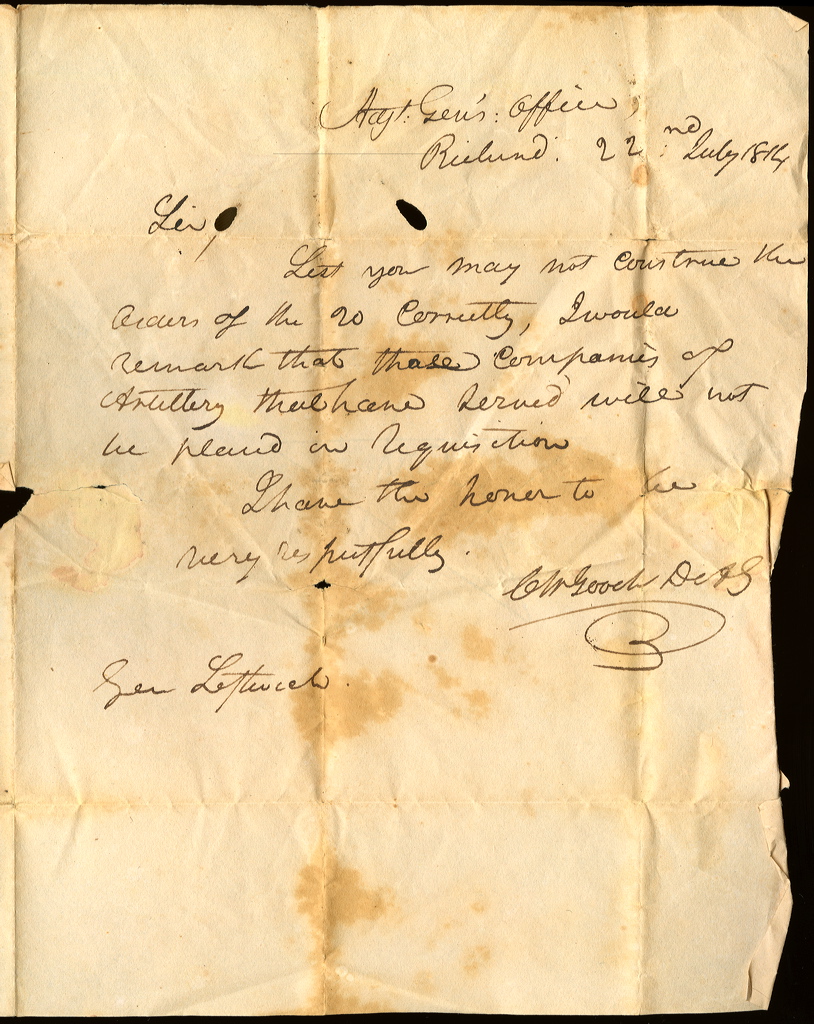 Adjt. Gen's: Office,
Richmd. 22nd: July 1814
Sir,
Lest you may not construe the
orders of the 20 Correctly, I would
remark that those Companies of
Artillery that have served will not
be placed in requisition
I have the honor to be
very respectfully.
C W Gooch D A G
Gen Leftwich.